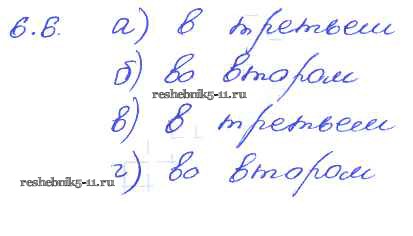 6.6. а) в третьем
б) во втором
reshebnik5-11.ru
в) в третьем
г) во втором
reshebnik5-11.ru